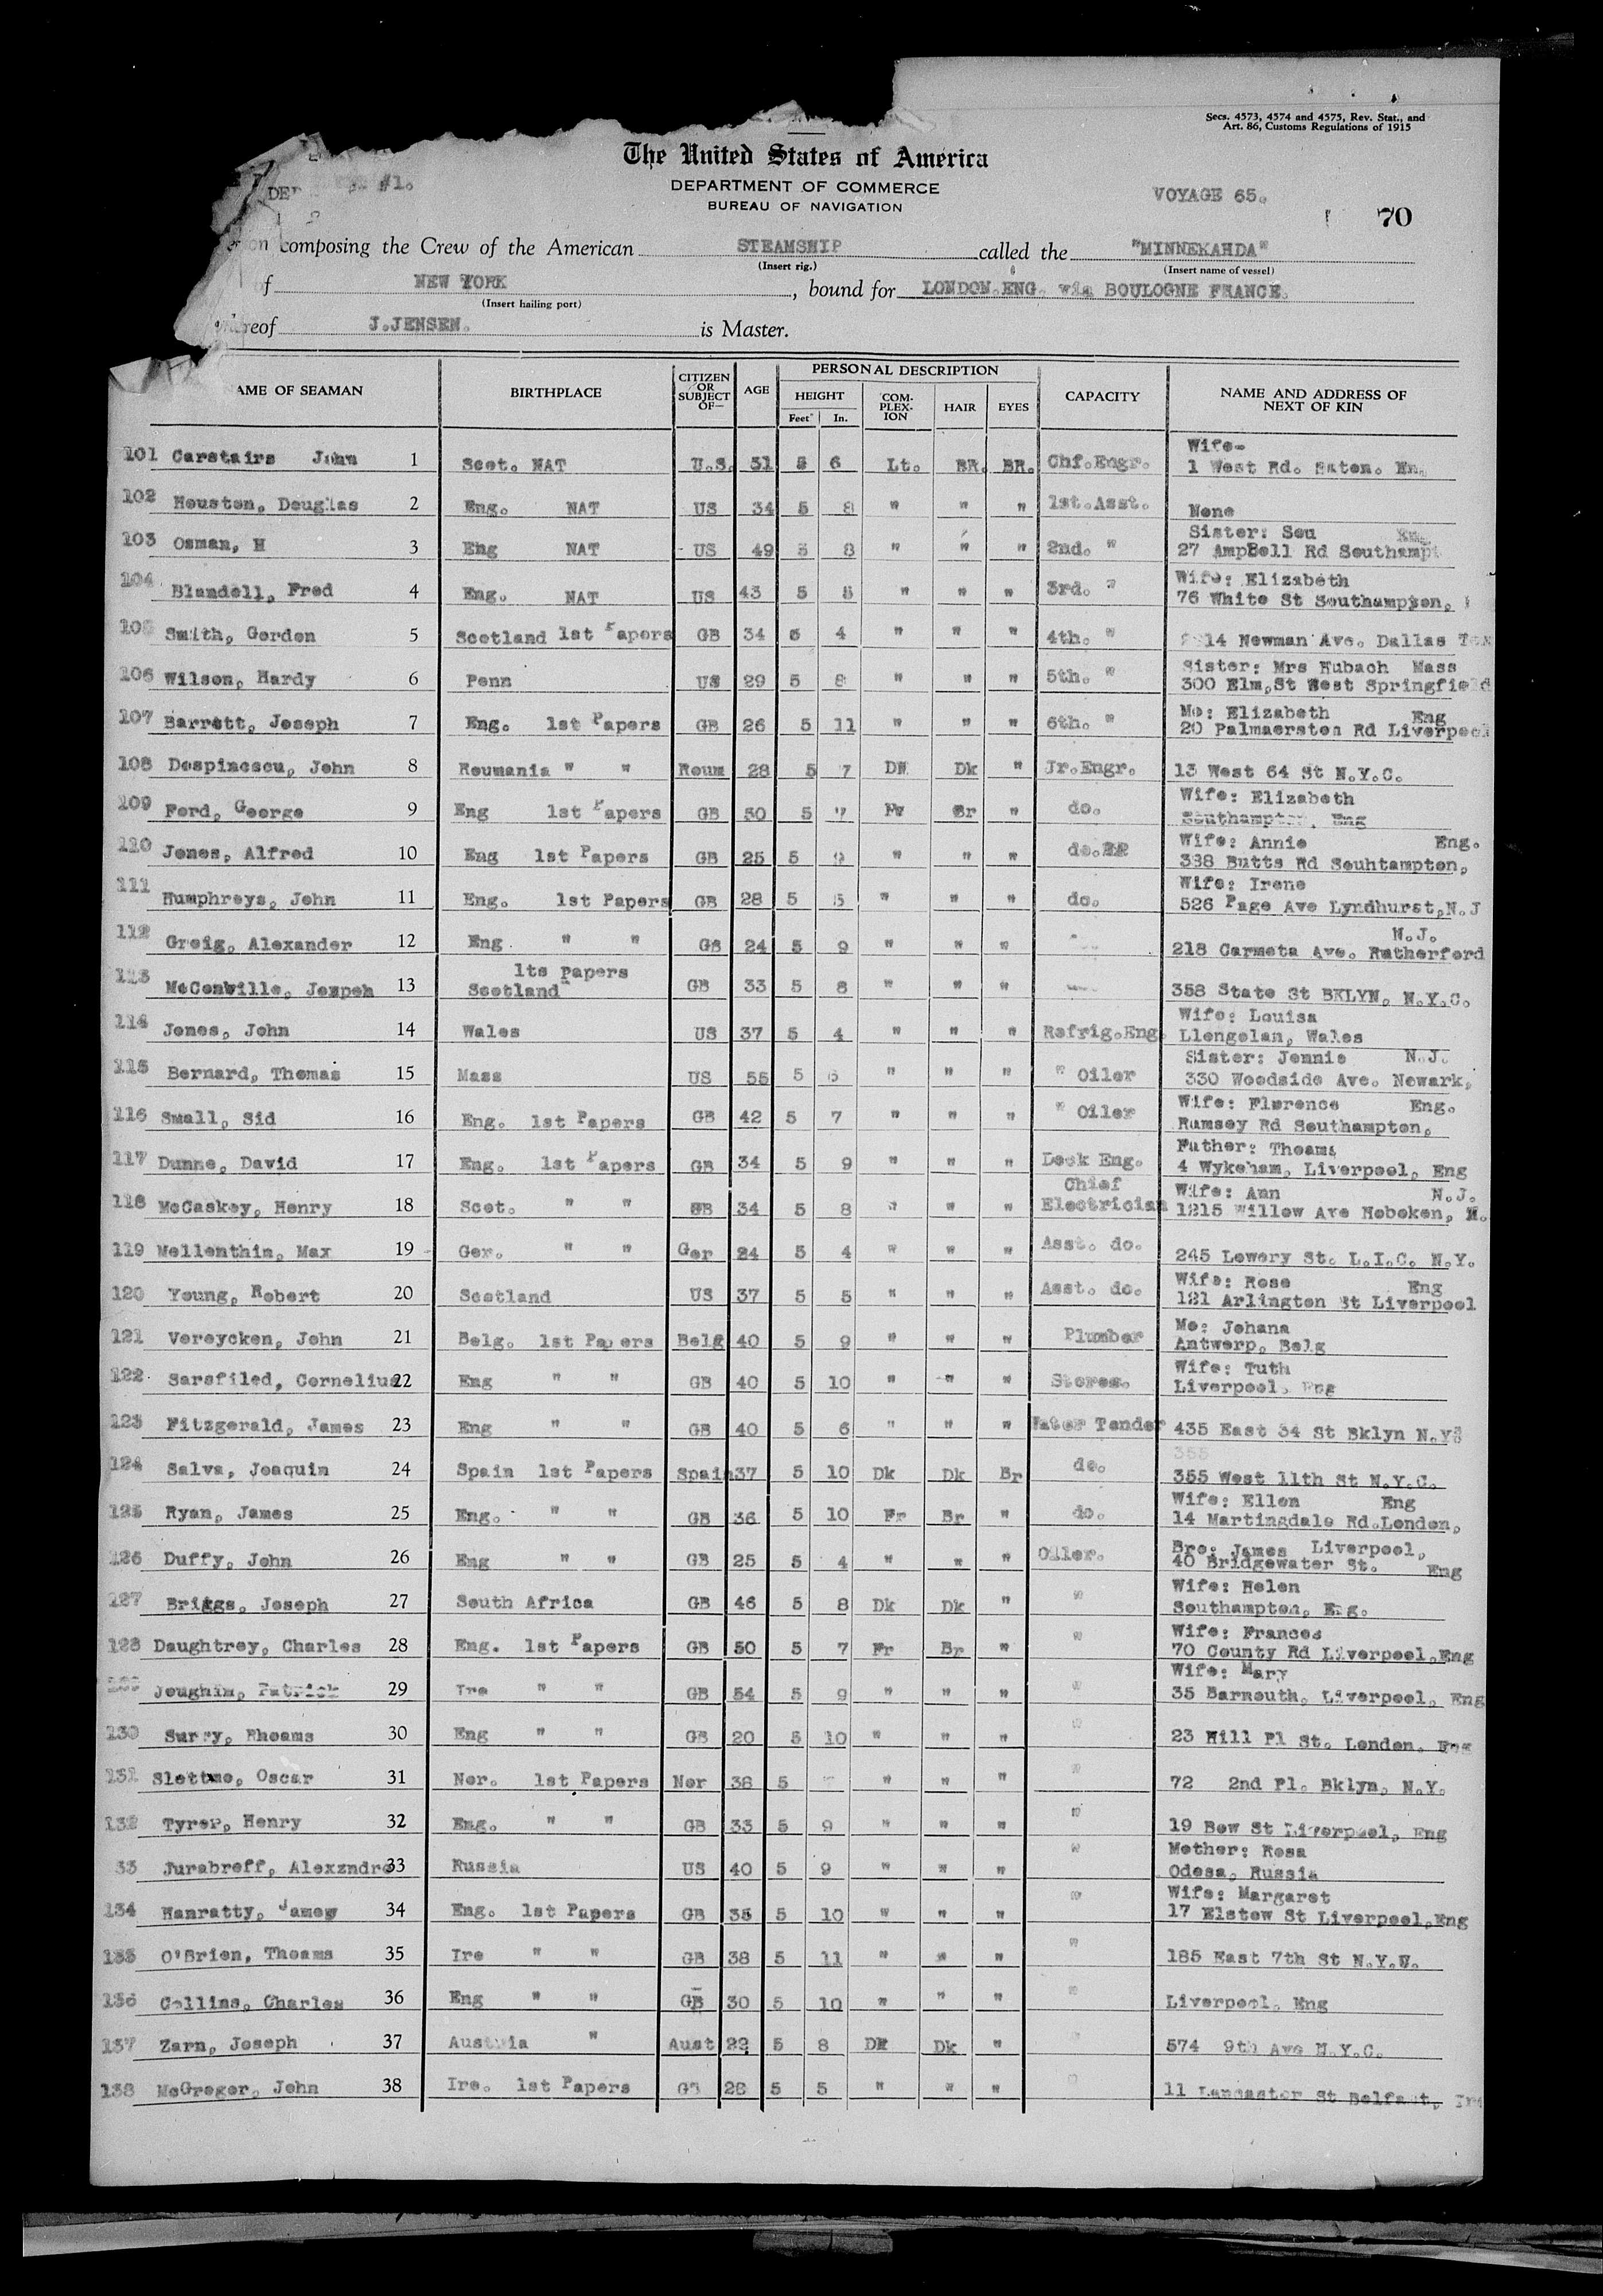 Secs. 4573, 4574 and 4575, Rev. Stat., and
Art. 86, Customs Regulations of 1915
The United States of America
#1.
DEPARTMENT OF COMMERCE
BUREAU OF NAVIGATION
VOYAGE 65.
70
composing the Crew of the American STEAMSHIP called the "MINNEKAHDA"
(Insert rig.) (Insert name of vessel)
of NEW YORK, bound for LONDON.ENG. via BOULOGNE FRANCE.
(Insert hailing port)
J.JENSEN. is Master.
NAME OF SEAMAN BIRTHPLACE CITIZEN OR SUBJECT OF— AGE PERSONAL DESCRIPTION CAPACITY NAME AND ADDRESS OF NEXT OF KIN
HEIGHT COM-PLEX-ION HAIR EYES
Feet In.
Wife-
101 Carstairs John 1 Scot. NAT U.S. 51 5 6 Lt. BR. BR. Chf.Engr. 1 West Rd.
102 Houston, Douglas 2 Eng. NAT US 34 5 8 " " " 1st.Asst. None
Sister: Sou Eng
103 Osman, H 3 Eng NAT US 49 5 8 " " " 2nd. " 27 AmpBell Rd Southampt
Wife: Elizabeth
104 Blandell, Fred 4 Eng. NAT US 43 5 5 " " " 3rd. " 76 White St Southampton,
Smith, Gordon 5 Scotland 1st Papers GB 34 5 4 " " " 4th. " 14 Newman Ave. Dallas Tex
Sister: Mrs Hubach Mass
106 Wilson, Hardy 6 Penn US 29 5 8 " " " 5th. " 300 Elm,St West Springfield
Mo: Elizabeth Eng
107 Barrett, Joseph 7 Eng. 1st Papers GB 26 5 11 " " " 6th. " 20 Palmaerston Rd Liverpool
108 Despinescu, John 8 Roumania " " Roum 28 5 7 DK Dk " Jr.Engr. 13 West 64 St N.Y.C.
Wife: Elizabeth
109 Ford, George 9 Eng 1st Papers GB 50 5 7 Br " do. Southampton, Eng
Wife: Annie Eng.
110 Jones, Alfred 10 Eng 1st Papers GB 25 5 9 " " " do. 338 Butts Rd Souhtampton,
Wife: Irene
111 Humphreys, John 11 Eng. 1st Papers GB 28 5 5 " " " do. 526 Page Ave Lyndhurst,N.J
N.J.
112 Greig, Alexander 12 Eng " " GB 24 5 9 " " " 218 Carmeta Ave. Rutherford
1ts Papers
113 McConville, Jospeh 13 Scotland GB 33 5 8 " " " 358 State St BKLYN, N.Y.C.
Wife: Louisa
114 Jones, John 14 Wales US 37 5 4 " " " Refrig.Eng. Llengolan, Wales
Sister: Jennie N.J.
115 Bernard, Thomas 15 Mass US 55 5 6 " " " " Oiler 330 Woodside Ave. Newark,
Wife: Florence Eng.
116 Small, Sid 16 Eng. 1st Papers GB 42 5 7 " " " " Oiler Ramsey Rd Southampton,
Father: Thoams
117 Dunne, David 17 Eng. 1st Papers GB 34 5 9 " " " Deck Eng. 4 Wykeham, Liverpool, Eng
Chief Wife: Ann N.J.
118 McCaskey, Henry 18 Scot. " " GB 34 5 8 " " " Electrician 1215 Willow Ave Hoboken, N.
119 Mellenthin, Max 19 Ger. " " Ger 24 5 4 " " " Asst. do. 245 Lowery St. L.I.C. N.Y.
Wife: Rose Eng
120 Young, Robert 20 Scotland US 37 5 5 " " " Asst. do. 121 Arlington St Liverpool
Mo: Johana
121 Vereycken, John 21 Belg. 1st Papers Belg 40 5 9 " " " Plumber Antwerp, Belg
Wife: Tuth
122 Sarsfiled, Cornelius 22 Eng " " GB 40 5 10 " " " Stores. Liverpool, Eng
123 Fitzgerald, James 23 Eng " " GB 40 5 6 " " " Water Tender 435 East 34 St Bklyn
355
124 Salva, Joaquin 24 Spain 1st Papers Spain 37 5 10 Dk Dk Br do. 355 West 11th St N.Y.C.
Wife: Ellen Eng
125 Ryan, James 25 Eng. " " GB 36 5 10 Fr Br " do. 14 Martingdale Rd.London,
Bro: James Liverpool,
126 Duffy, John 26 Eng " " GB 25 5 4 " " " Oiler. 40 Bridgewater St. Eng
Wife: Helen
127 Briggs, Joseph 27 South Africa GB 46 5 8 Dk Dk " " Southampton, Eng.
Wife: Frances
128 Daughtrey, Charles 28 Eng. 1st Papers GB 50 5 7 Fr Br " " 70 County Rd Liverpool,Eng
Wife: Mary
Joughin, Patrick 29 Ire " " GB 54 5 9 " " " " 35 Barmouth, Liverpool, Eng
130 Surry, Rhoams 30 Eng " " GB 20 5 10 " " " " 23 Hill Pl St. London. Eng
131 Slettmo, Oscar 31 Nor. 1st Papers Nor 38 5 " " " " 72 2nd Pl. Bklyn, N.Y.
132 Tyrer, Henry 32 Eng. " " GB 33 5 9 " " " " 19 Bow St Liverpool, Eng
Mother: Rosa
33 Jurabreff, Alexzndre 33 Russia US 40 5 9 " " " " Odesa, Russia
Wife: Margaret
134 Hanratty, James 34 Eng. 1st Papers GB 35 5 10 " " " " 17 Elstow St Liverpool,Eng
135 O'Brien, Thoams 35 Ire " " GB 38 5 11 " " " " 185 East 7th St
136 Collins, Charles 36 Eng " " GB 30 5 10 " " " " Liverpool, Eng
137 Zarn, Joseph 37 Austria " Aust 22 5 8 DK Dk " " 574 9th Ave N.Y.C.
138 McGregor, John 38 Ire. 1st Papers GB 28 5 5 " " " " 11 Lancaster St Belfast, Ire